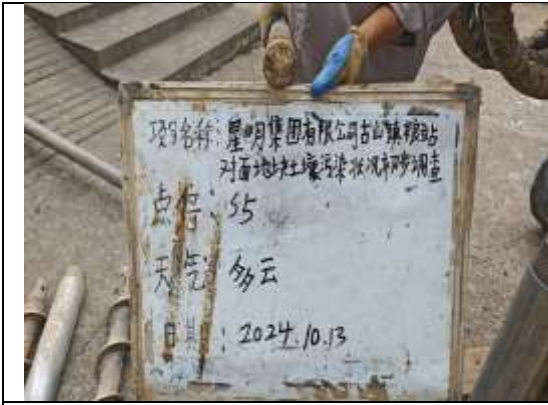 项目名称:星明集团有限公司古山镇粮站
对面地块土壤污染状况初步调查
点位:S5
天气:多云
日期:2024.10.13